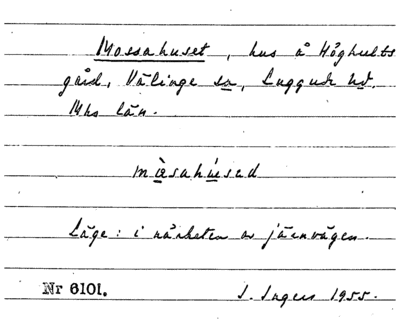 Mossahuset, hus å Höghults
gård, Välinge sn, Luggude hd.
Mhs län.
mɑ̀sahúsəd
Läge: i närheten av järnvägen.
Nr 6101. I. Ingers 1955.